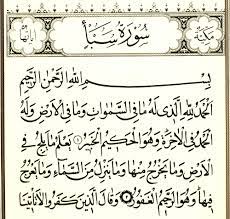 سُورَةُ سَبَأٍ
بِسْمِ اللَّهِ الرَّحْمَٰنِ الرَّحِيمِ
الْحَمْدُ لِلَّهِ الَّذِي لَهُ مَا فِي السَّمَٰوَاتِ وَمَا فِي الْأَرْضِ وَلَهُ
الْحَمْدُ فِي الْآخِرَةِ وَهُوَ الْحَكِيمُ الْخَبِيرُ ۝ يَعْلَمُ مَا يَلِجُ فِي
الْأَرْضِ وَمَا يَخْرُجُ مِنْهَا وَمَا يَنْزِلُ مِنَ السَّمَاءِ وَمَا يَعْرُجُ
فِيهَا وَهُوَ الرَّحِيمُ الْغَفُورُ ۝ وَقَالَ الَّذِينَ كَفَرُوا لَا تَأْتِينَا